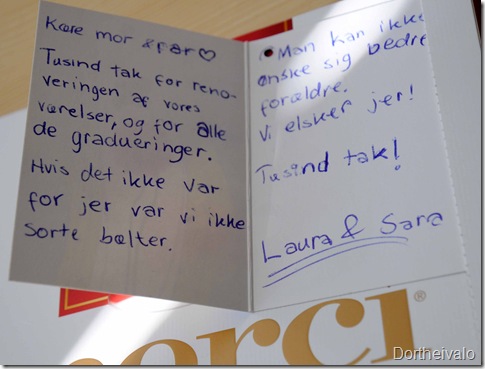 Kære mor & far ♡
Tusind tak for reno-
veringen af vores
værelser, og for alle
de gradueringer.
Hvis det ikke var
for jer var vi ikke
sorte bælter.
Man kan ikke
ønske sig bedre
forældre.
Vi elsker jer!
Tusind tak!
Laura & Sara
erci®
Dortheivalo